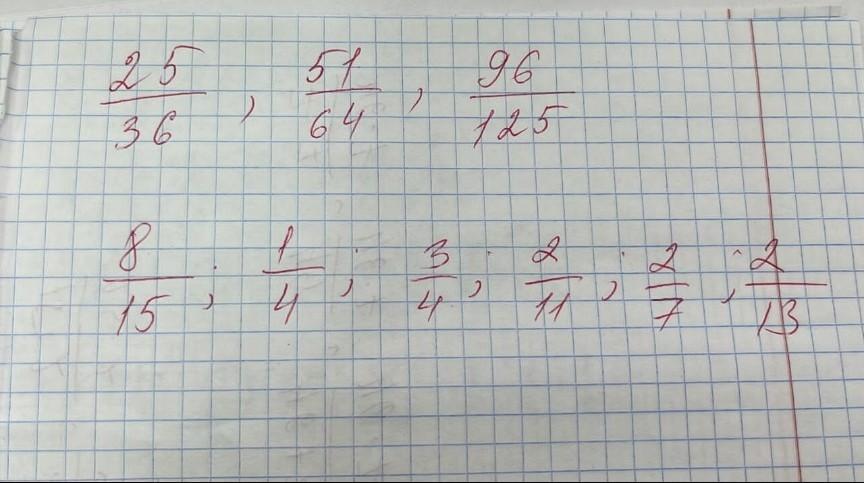 25/36, 51/64, 96/125
8/15; 1/4; 3/4; 2/11; 2/7; 2/13